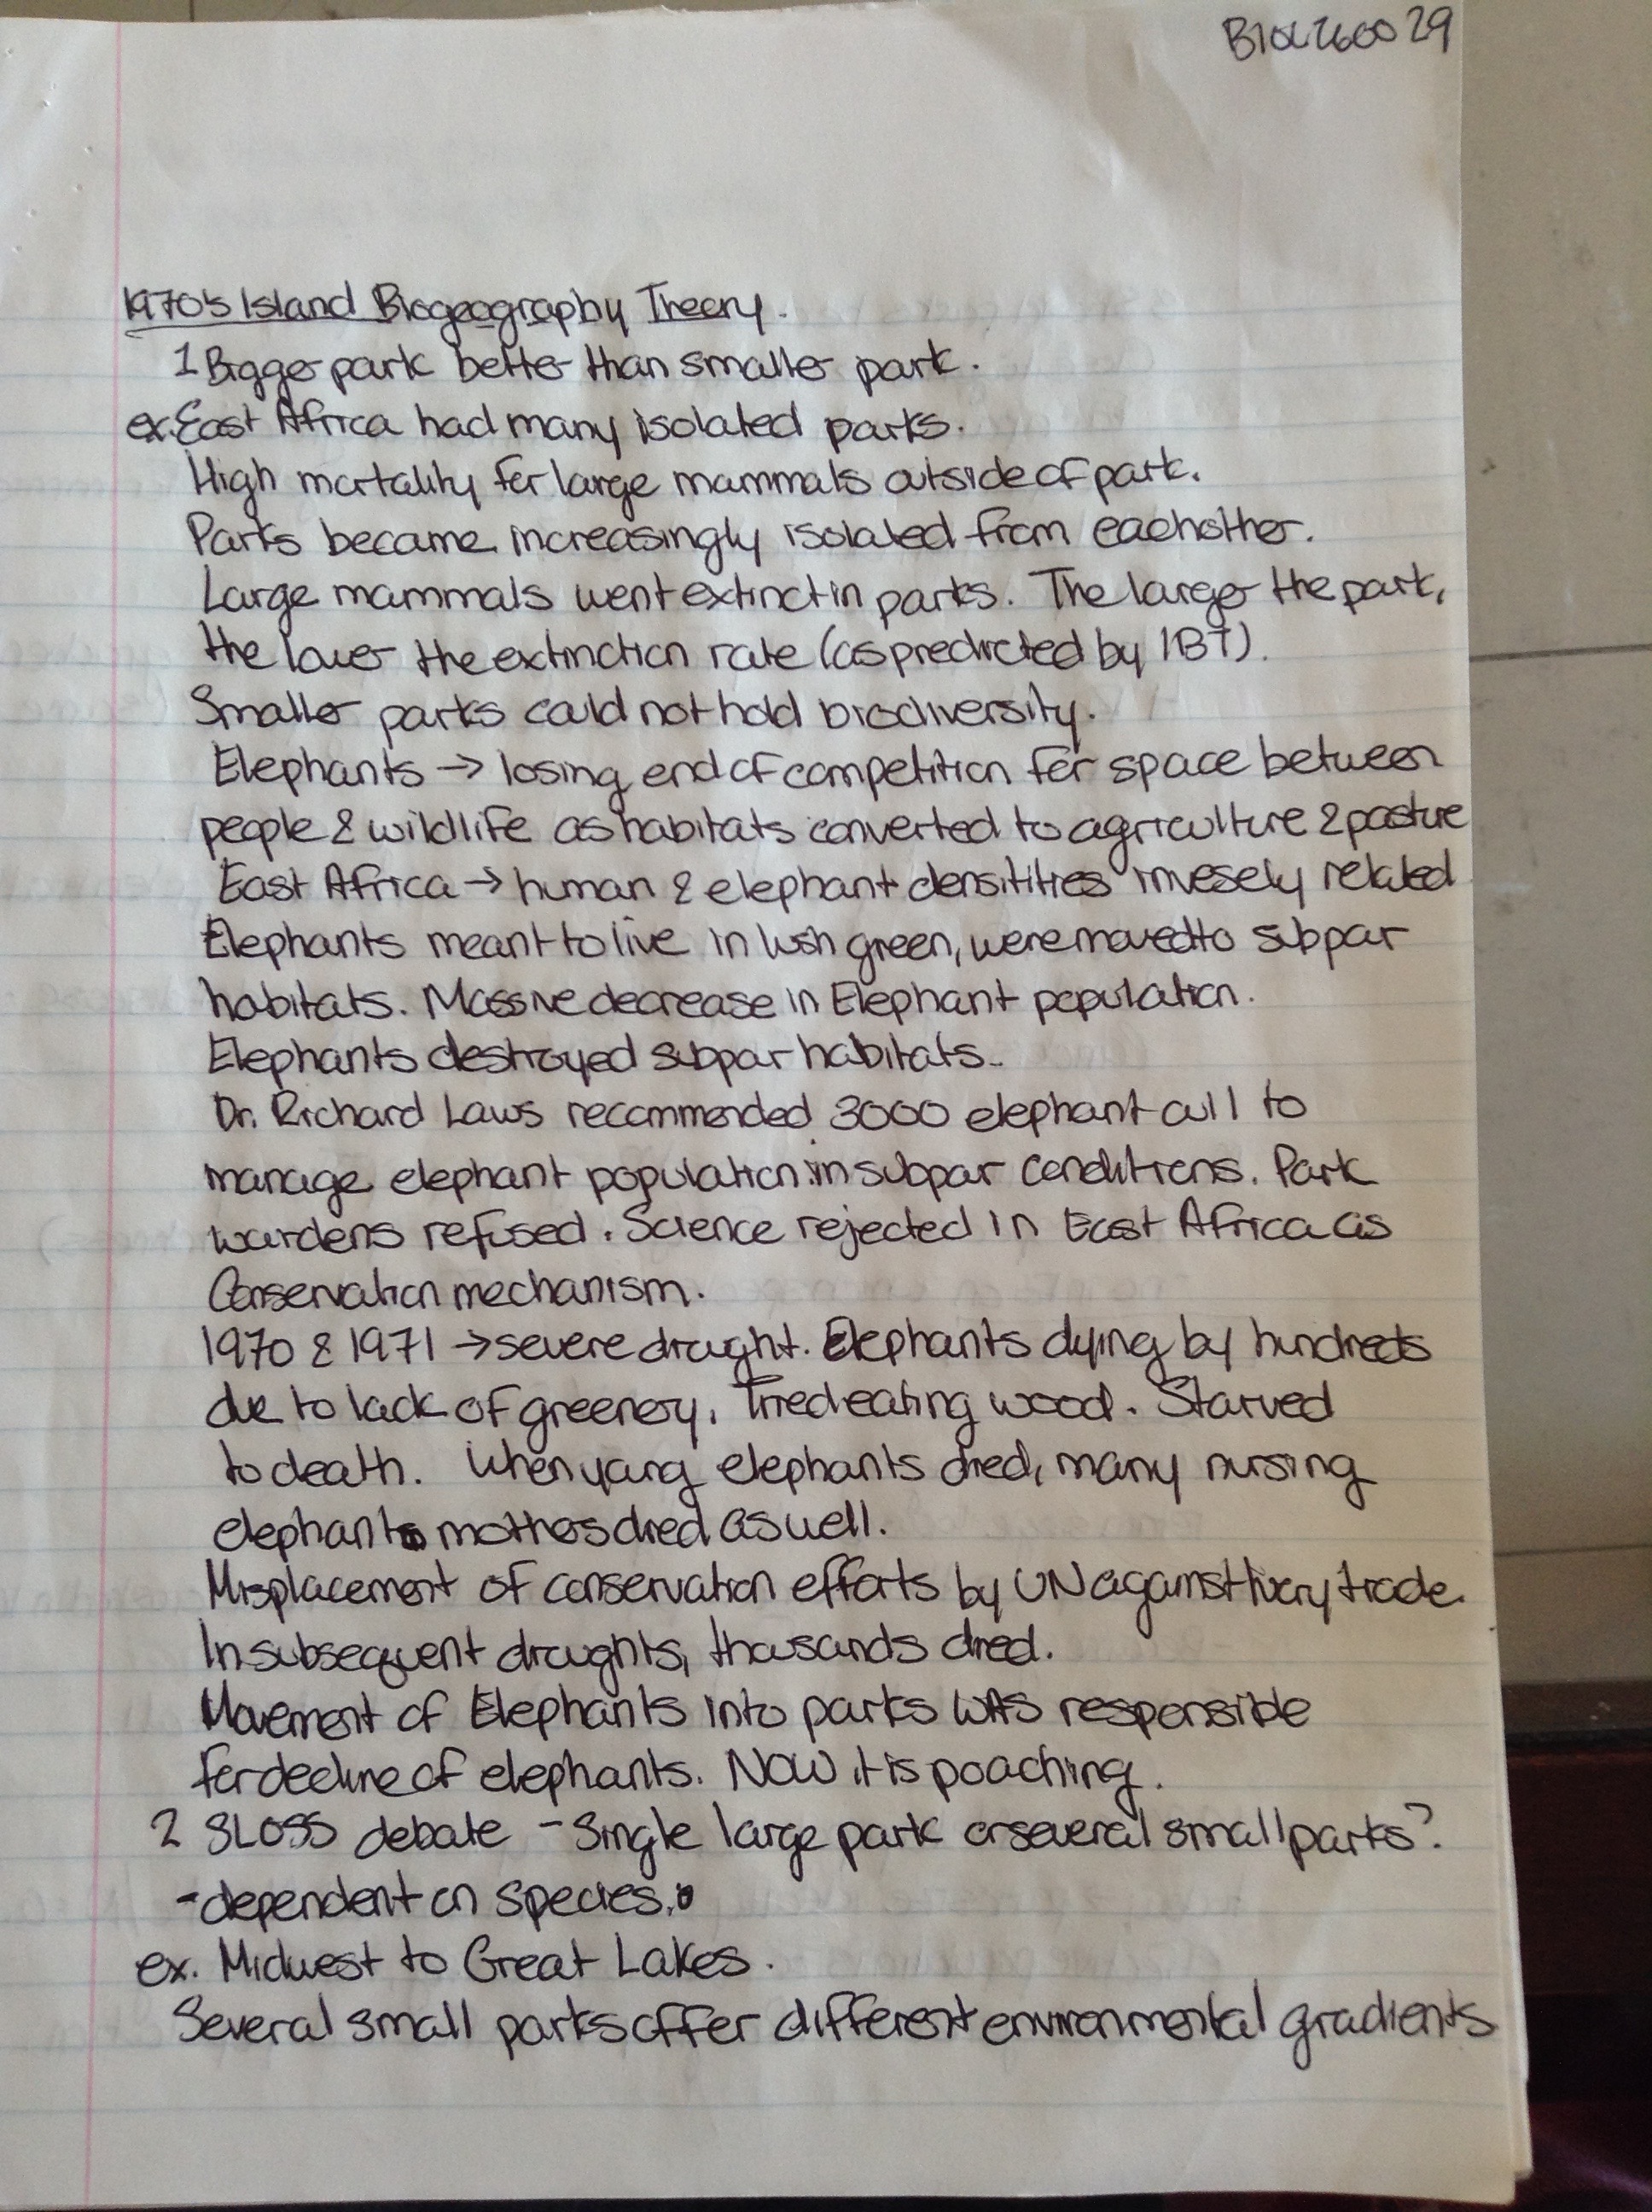 BIOL2600 29
1970's Island Biogeography Theory.
1 Bigger park better than smaller park.
ex. East Africa had many isolated parks.
High mortality for large mammals outside of park.
Parts became increasingly isolated from eachother.
Large mammals went extinct in parks. The larger the park,
the lower the extinction rate (as predicted by IBT).
Smaller parks could not hold biodiversity.
Elephants → losing end of competition for space between
people & wildlife as habitats converted to agriculture & pasture
East Africa → human & elephant densitities invesely related
Elephants meant to live in lush green, were moved to subpar
habitats. Massive decrease in Elephant population.
Elephants destroyed subpar habitats.
Dr. Richard Laws recommended 3000 elephant cull to
manage elephant population in subpar conditions. Park
wardens refused. Science rejected in East Africa as
Conservation mechanism.
1970 & 1971 → severe drought. Elephants dying by hundreds
due to lack of greenery, Tried eating wood. Starved
to death. When young elephants died, many nursing
elephant mothers died as well.
Misplacement of conservation efforts by UN against Ivory trade.
In subsequent droughts, thousands died.
Movement of Elephants into parks WAS responsible
for decline of elephants. NOW it is poaching.
2 SLOSS debate - Single large park or several small parks?
- dependent on species.
ex. Midwest to Great Lakes.
Several small parks offer different environmental gradients